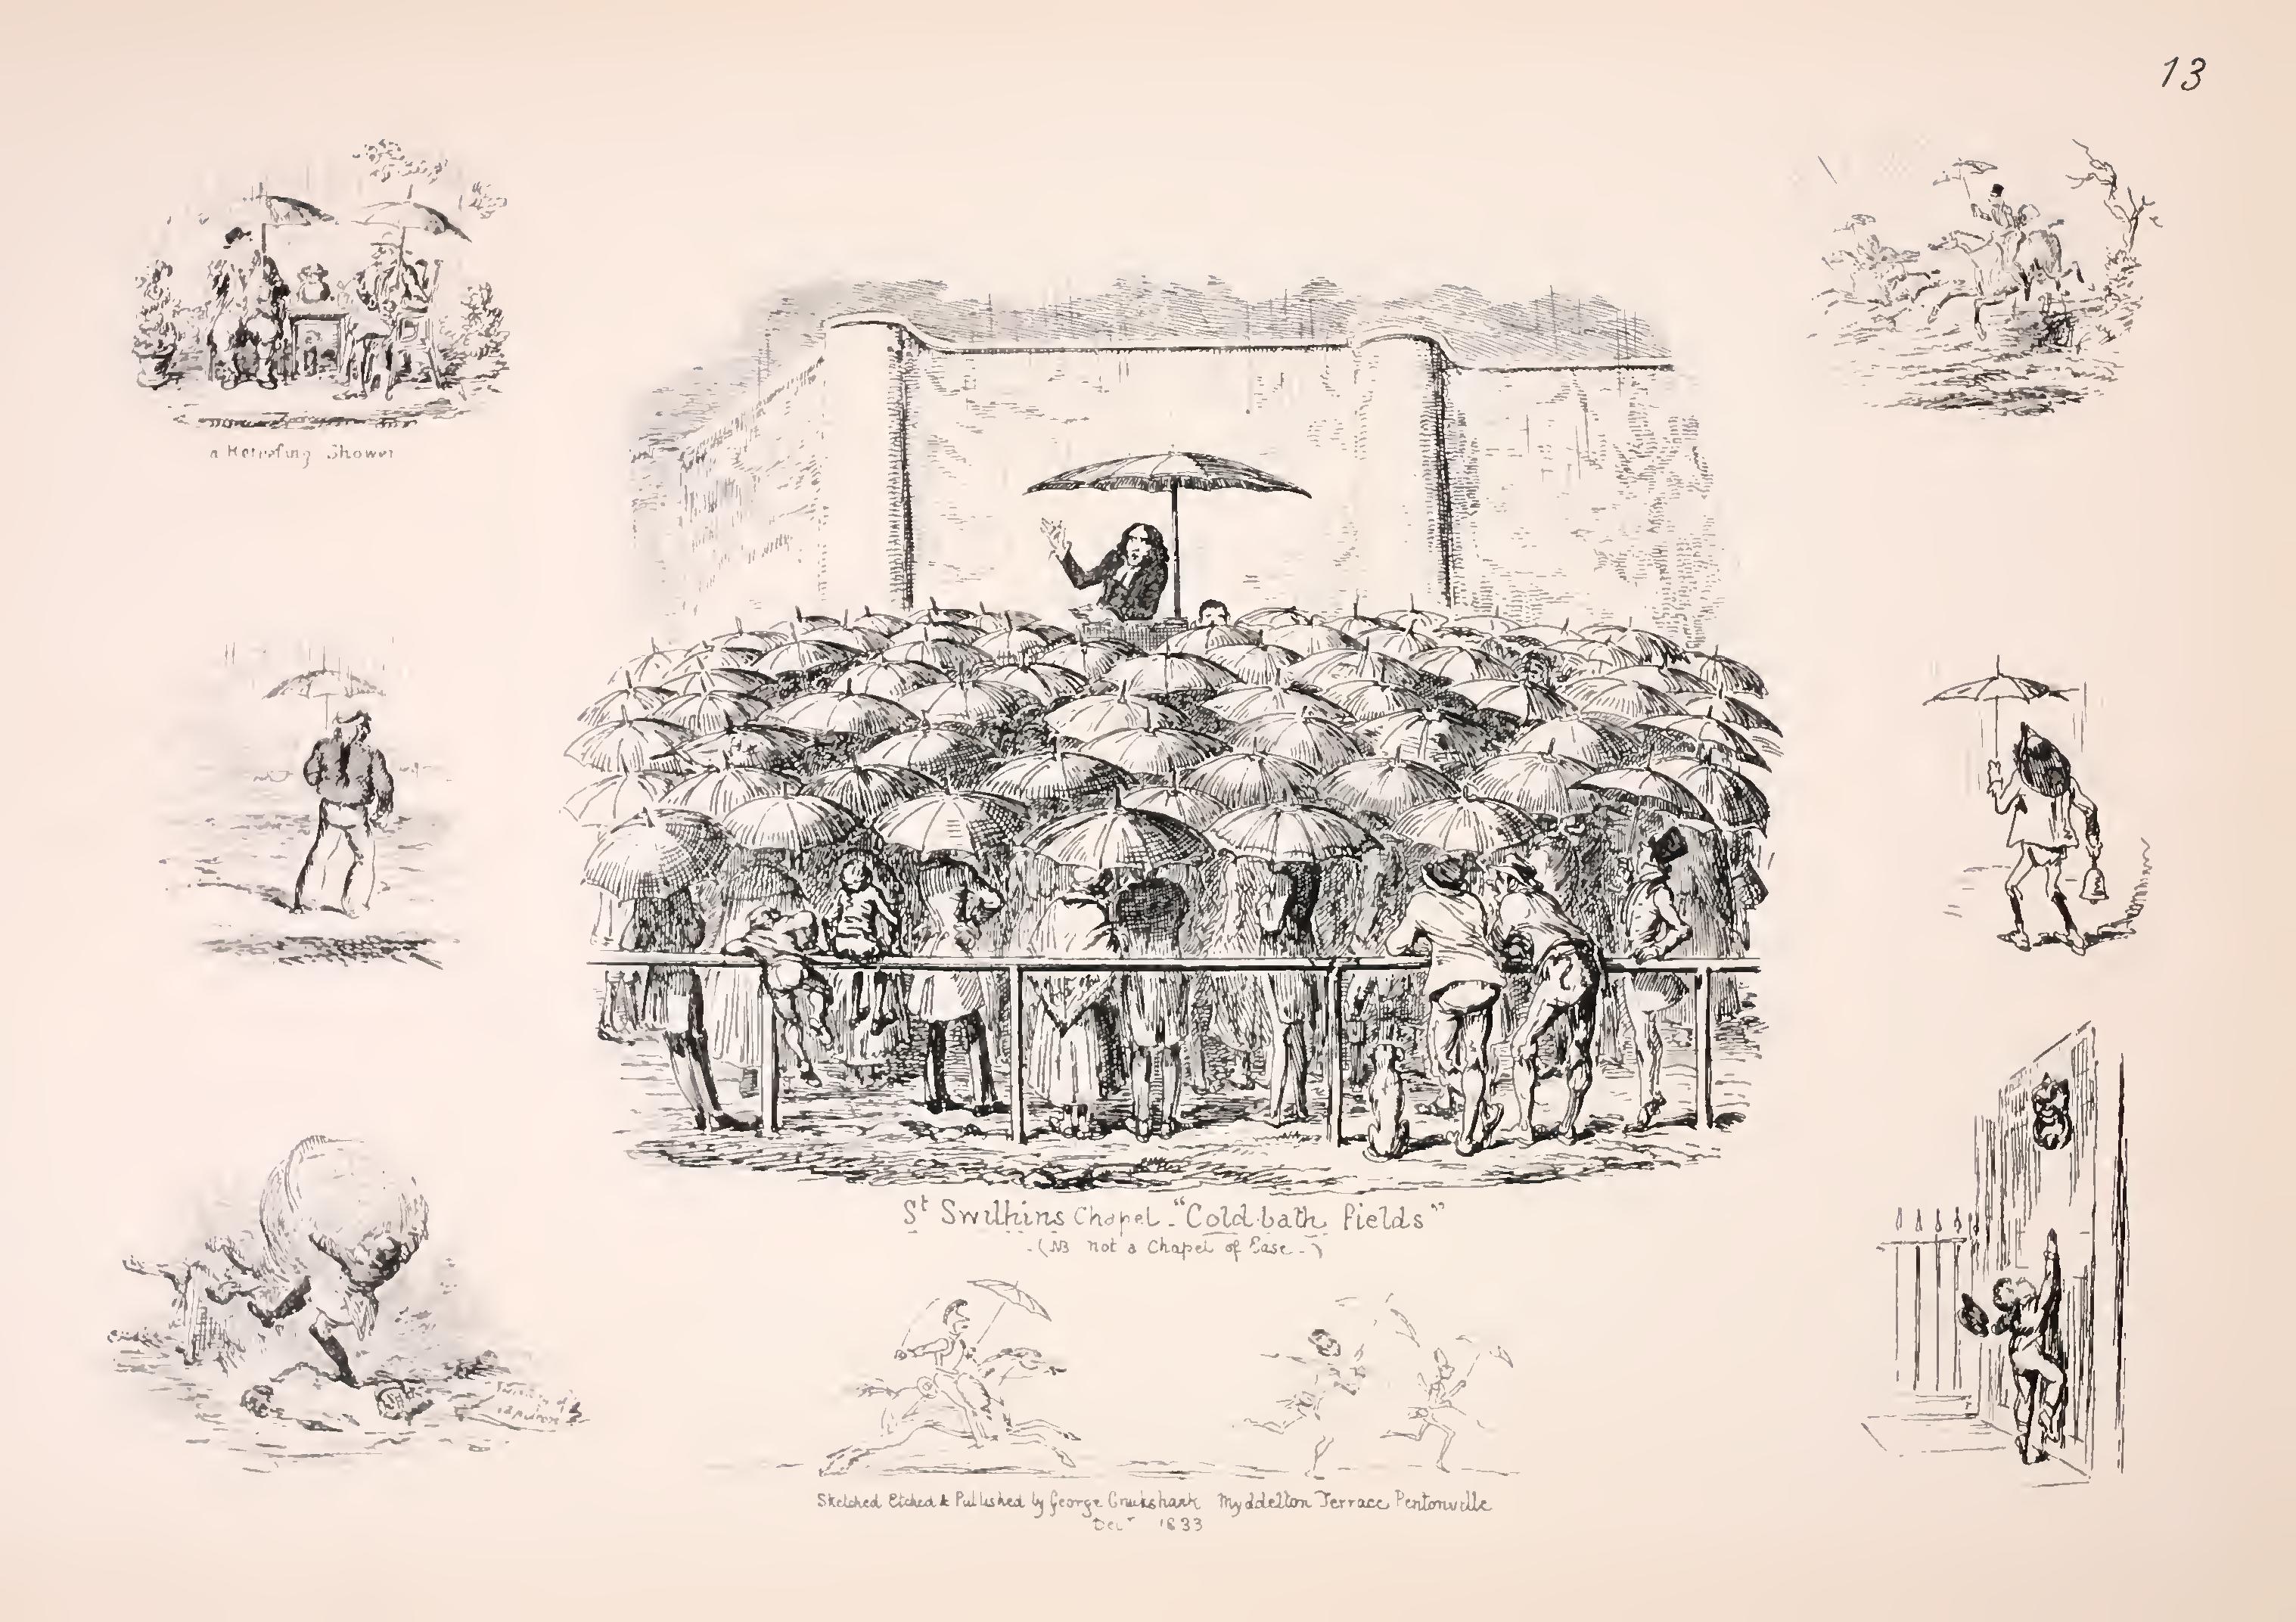 13
a Refreshing Shower
St Swithins Chapel - "Cold-bath fields"
- (NB not a Chapel of Ease - )
Sketched Etched & Published by George Cruikshank Myddelton Terrace Pentonville
Decr 1833